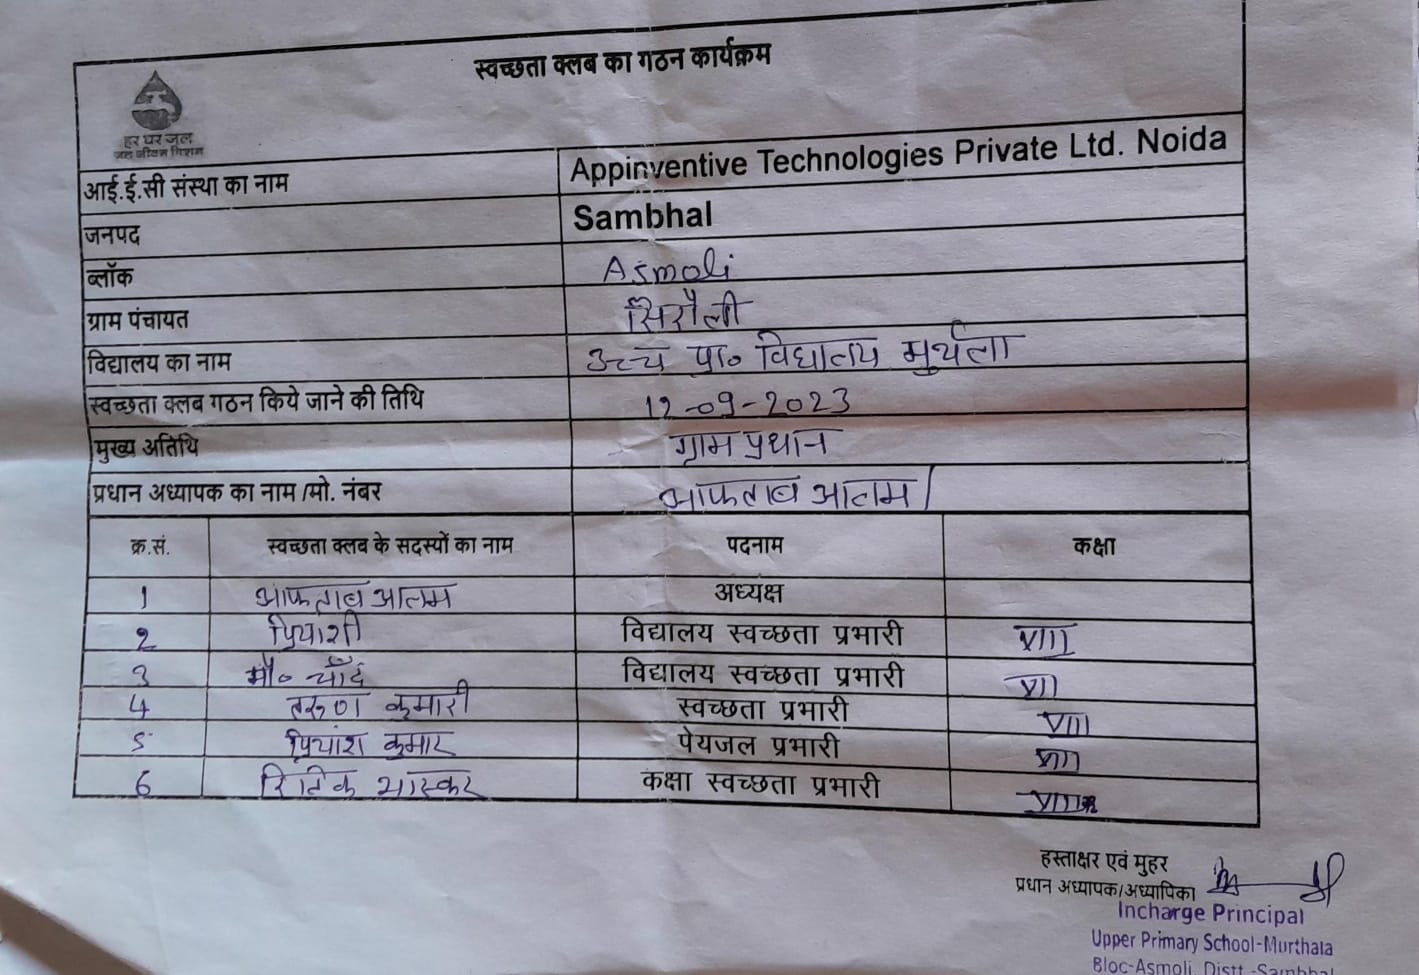 स्वच्छता क्लब का गठन कार्यक्रम
हर घर जल
जल जीवन मिशन
आई.ई.सी संस्था का नाम Appinventive Technologies Private Ltd. Noida
जनपद Sambhal
ब्लॉक Asmoli
ग्राम पंचायत सिरौली
विद्यालय का नाम उच्च प्रा० विद्यालय मुर्थला
स्वच्छता क्लब गठन किये जाने की तिथि 12-09-2023
मुख्य अतिथि ग्राम प्रधान
प्रधान अध्यापक का नाम /मो. नंबर आफताब आलम /
क्र.सं. स्वच्छता क्लब के सदस्यों का नाम पदनाम कक्षा
1 आफताब आलम अध्यक्ष
2 प्रियांशी विद्यालय स्वच्छता प्रभारी VIII
3 मौ० चाँद विद्यालय स्वच्छता प्रभारी VII
4 तरुण कुमारी स्वच्छता प्रभारी VIII
5 प्रियांश कुमार पेयजल प्रभारी
6 रितिक भास्कर कक्षा स्वच्छता प्रभारी
हस्ताक्षर एवं मुहर
प्रधान अध्यापक/अध्यापिका
Incharge Principal
Upper Primary School-Murthala
Bloc-Asmoli, Distt.-Sambhal